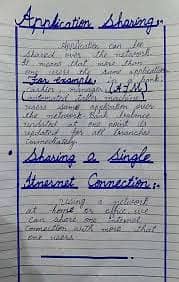 Application Sharing:-
Application can be
shared over the network.
It means that more than
one users the same application
For example, in a bank,
cashier, manager, (ATM)
(automated teller machine)
users same application over
the network. Bank balance
updated at one point is
updated for all branches
immediately.
• Sharing a Single
Internet Connection:-
using a network
at home or office, we
can share one internet
connection with more that
one users.